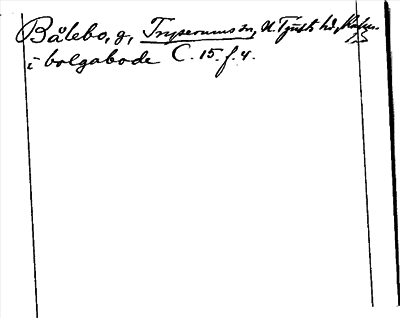 Bålebo, g, Tryserums sn, N. Tjusts hd, Kalm.
i bolgabode C. 15. f. 4.